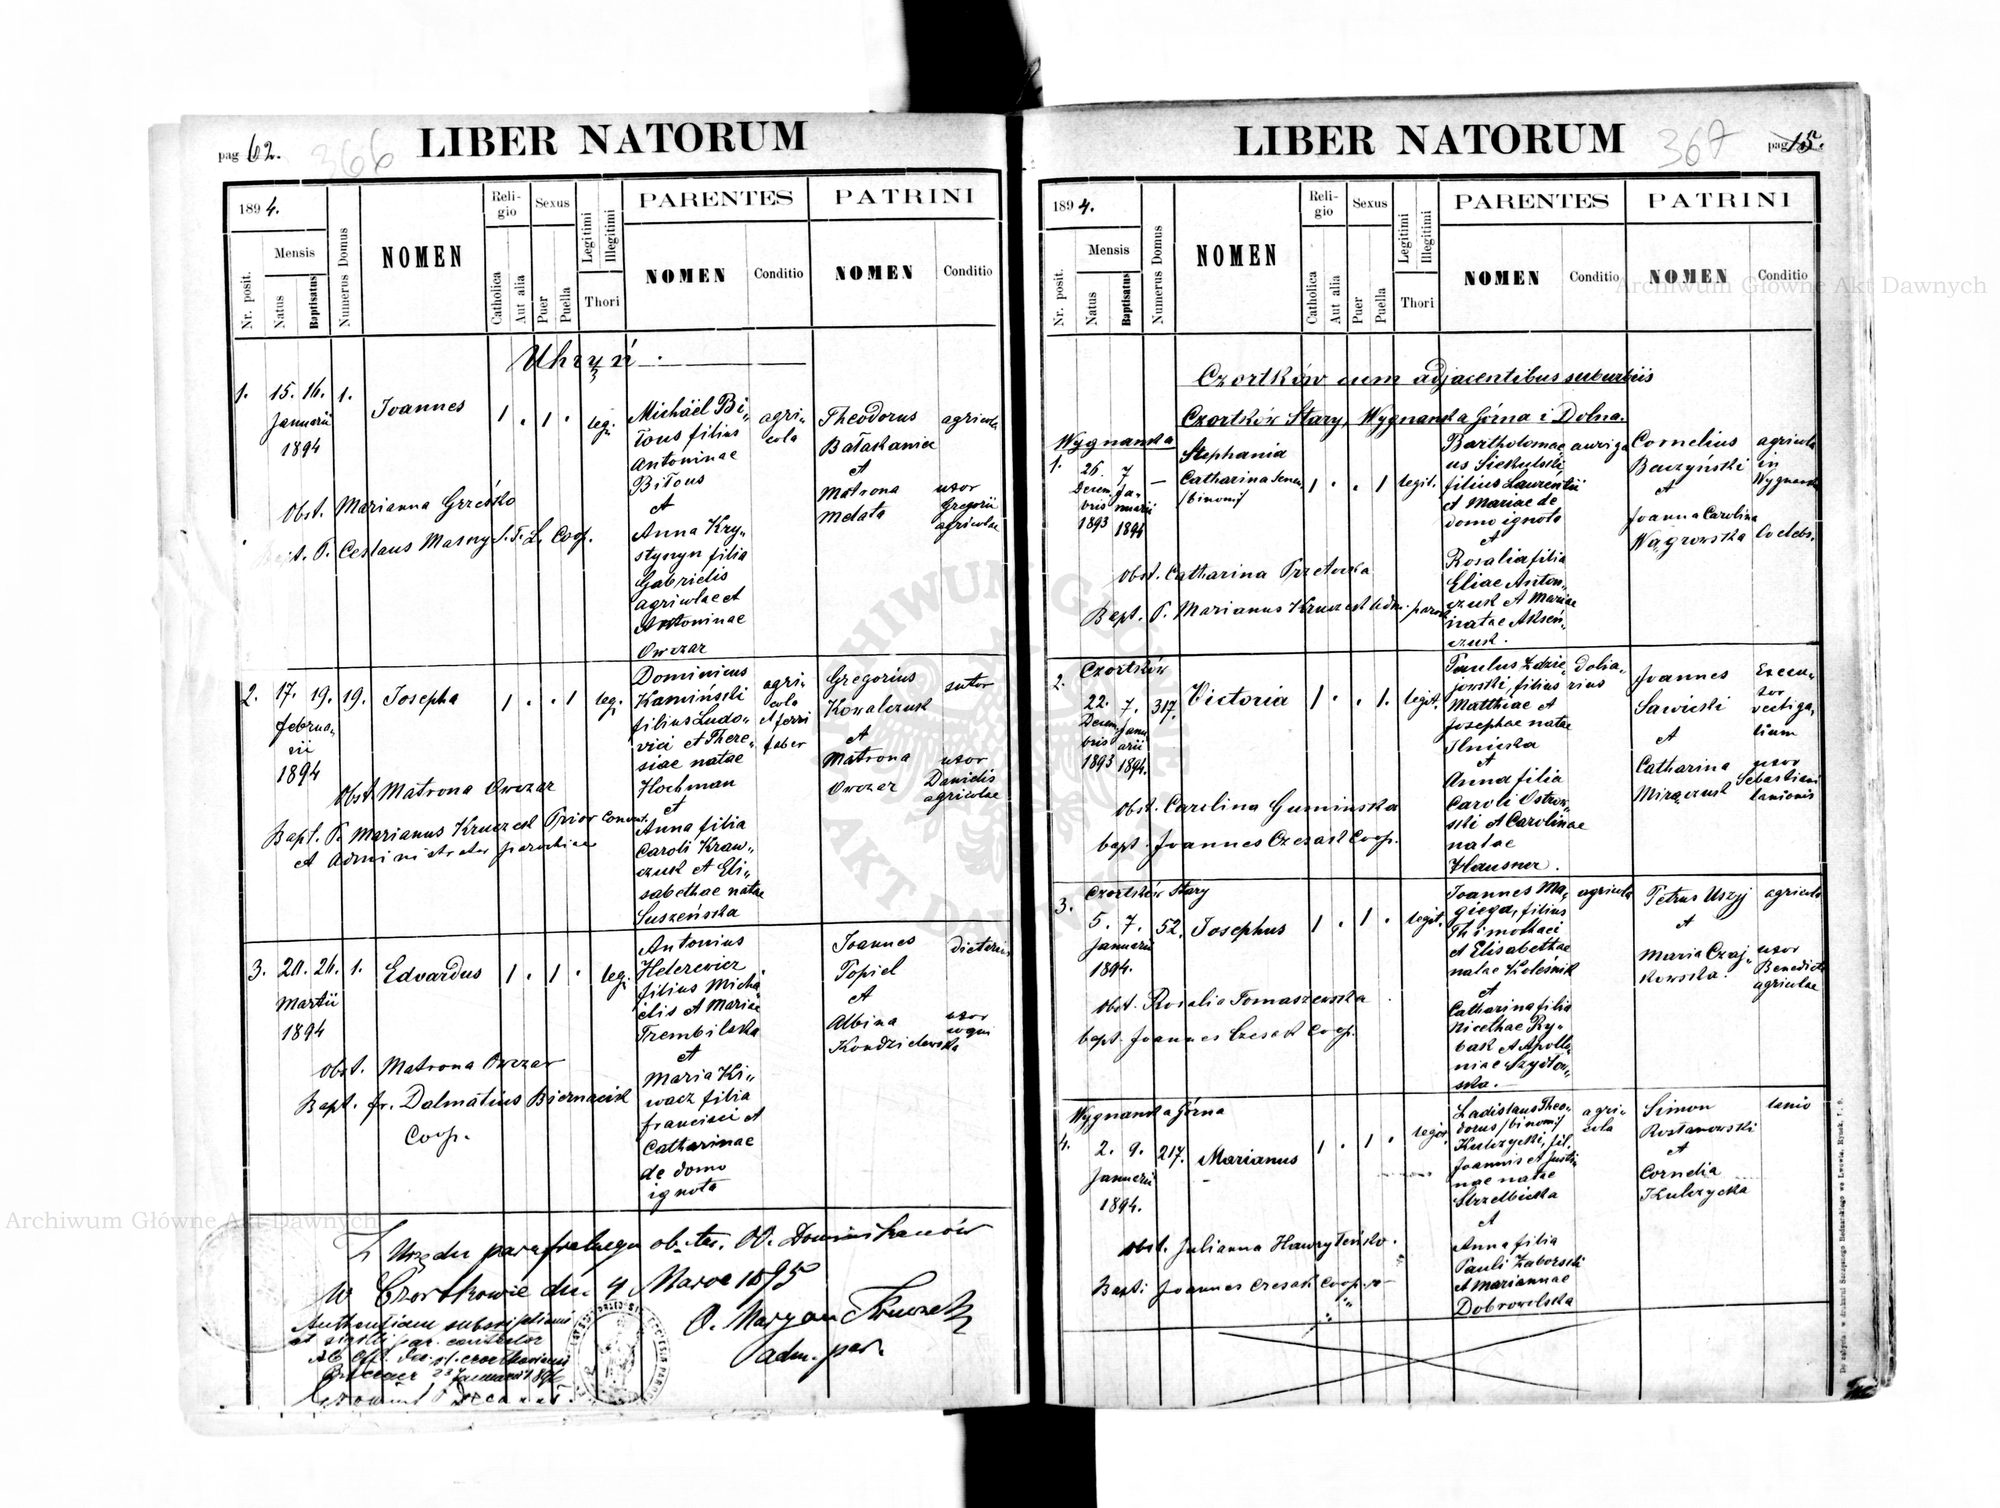 pag 62. 366 LIBER NATORUM
1894.
Nr. posit.
Mensis
Natus
Baptisatus
Numerus Domus
NOMEN
Religio
Catholica
Aut alia
Sexus
Puer
Puella
Legitimi
Illegitimi
Thori
PARENTES
NOMEN
Conditio
PATRINI
NOMEN
Conditio
Uhryń.
1.
15. 16.
Januarii
1894
1.
Joannes
1 . 1 .
legi.
Michäel Bi„
łous filius
Antoninae
Biłous
et
Anna Kry„
stynyn filia
Gabrielis
agricolae et
Antoninae
Owczar
agri„
cola
Theodorus
et
Matrona
Melata
agricola
uxor
Gregorii
agricolae
Obst. Marianna
Bapt. P. Ceslaus Coop.
2.
17. 19.
Februa„
rii
1894
19.
Josepha
1 . . 1
legi.
Dominicus
Kamiński
filius Ludo„
vici et There„
siae natae
Hochman
et
Anna filia
Caroli Kraw„
czuk et Eli„
sabethae natae
Suszeńska
agri„
cola
et ferri
faber
Gregorius
Kowalczuk
et
Matrona
Owczar
sutor
uxor
Danielis
agricolae
Obst. Matrona Owczar
Bapt. P. Marianus Kruczek Prior convent.
et Administrator parochiae
3.
20. 26.
Martii
1894
1.
Edvardus
1 . 1 .
legi.
Antonius
filius Micha„
elis et Mariae
Trembilska
et
Maria Ki„
wacz filia
Francisci et
Catharinae
de domo
ignota
Joannes
Topiel
et
Albina
Kondzielewska
uxor
coqui
Obst. Matrona Owczar
Bapt. fr. Dalmatius Biernacik
Coop.
Z Urzędu parafialnego ob. łac. OO. Dominikanów
w Czortkowie dn. 4 Marca 1895
O. Maryan Kruczek
adm. par.
LIBER NATORUM 367 pag 15.
1894.
Nr. posit.
Mensis
Natus
Baptisatus
Numerus Domus
NOMEN
Religio
Catholica
Aut alia
Sexus
Puer
Puella
Legitimi
Illegitimi
Thori
PARENTES
NOMEN
Conditio
PATRINI
NOMEN
Conditio
Czortków cum adjacentibus suburbiis
Czortków Stary, Wygnanka Górna i Dolna.
Wygnanka
1.
26. 7
Decem„ Ja„
bris nuarii
1893 1894
—
Stephania
Catharina
/binom/
1 . . 1
legit.
Bartholomae„
us Siekulski
filius Laurentii
et Mariae de
domo ignota
et
Rosalia filia
Eliae Anton„
czuk et Mariae
natae Aksen„
czuk.
auriga
Cornelius
Baczyński
et
Joanna Carolina
Wągrowska
agricola
in
Wygnanka
Coelebs.
Obst. Catharina
Bapt. P. Marianus Kruczek Adm. paroch.
2.
Czortków
22. 7.
Decem„ Janu„
bris arii
1893 1894.
317.
Victoria
1 . . 1.
legit.
Paulus Zdzie„
jowski, filius
Matthiae et
Josephae natae
Ilnicka
et
Anna filia
Caroli Ostrow„
ski et Carolinae
natae
Hausner.
dolia„
rius
Joannes
Sawicki
et
Catharina
Mirączuk
Execu„
tor
vectiga„
lium
uxor
Sebastiani
lanionis
Obst. Carolina Guminska
bapt. Joannes Czesak Coop.
3.
Czortków Stary
5. 7.
Januarii
1894.
52.
Josephus
1 . 1 .
legit.
Joannes Ma„
giega, filius
Thimothaei
et Elisabethae
natae Koleśnik
et
Catharina filia
Nicethae Ry„
bak et Apollo„
niae Szydłow„
ska.
agricola
Petrus Uszyj
et
Maria Czaj„
kowska.
agricola
uxor
Benedicti
agricolae
Obst. Rosalia Tomaszewska
bapt. Joannes Czesak Coop.
Wygnanka Górna
4.
2. 9.
Januarii
1894.
217.
Marianus
1 . 1 .
legit.
Ladislaus Theo„
dorus /binom/
Kulczycki, fil.
Joannis et Justi„
nae natae
Strzelbicka
et
Anna filia
Pauli Zaborski
et Mariannae
Dobrowolska
agri„
cola
Simon
Rostanowski
et
Cornelia
Kulczycka
lanio
Obst. Julianna Hawryłeńko.
Bapt. Joannes Czesak Coop.
Archiwum Główne Akt Dawnych
Archiwum Główne Akt Dawnych